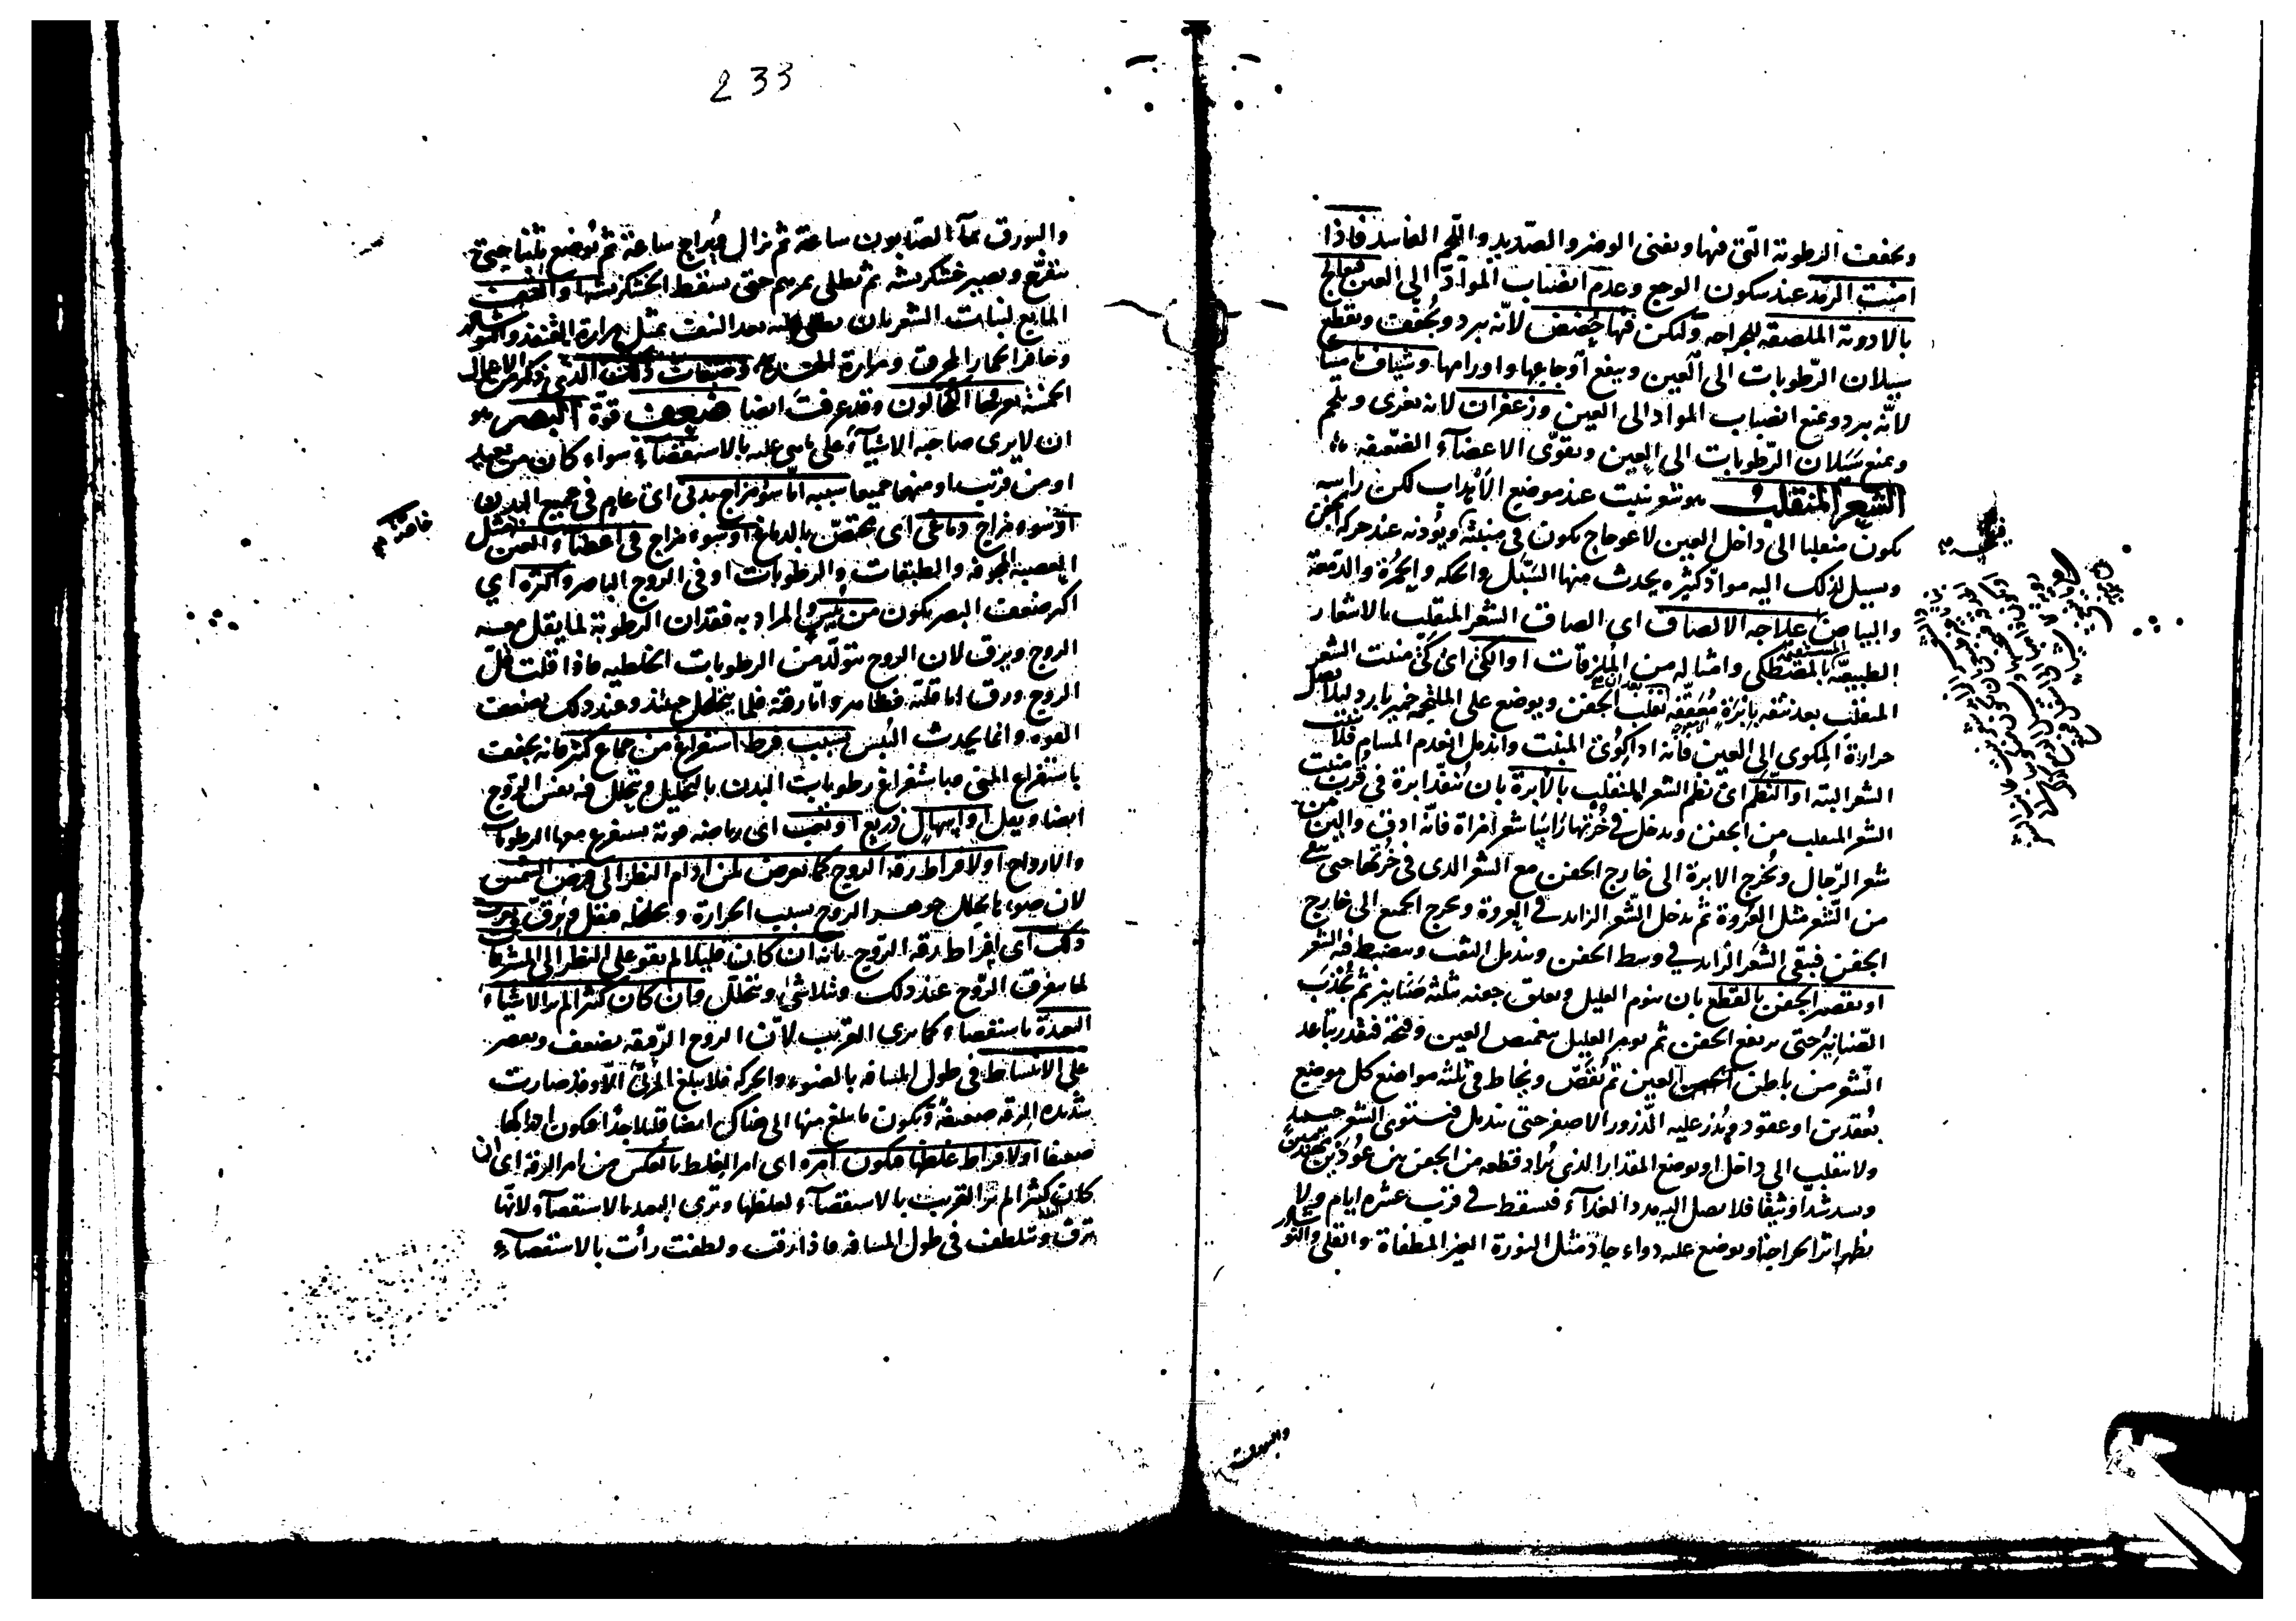 ويجفف الرطوبة التي فيها ويفنى الوضر والصديد واللحم الفاسد فاذا
امنت الرمد عند سكون الوجع وعدم انصباب المواد الى العين فيعالج
بالادوية الملصقة للجراحه ولكن فيها حضض لانه يبرد ويجفف ويقطع
سيلان الرطوبات الى العين وينفع اوجاعها واورامها وشياف ماميثا
لانه يبرد ويمنع انصباب المواد الى العين وزعفران لانه يغرى ويلحم
ويمنع سيلان الرطوبات الى العين ويقوى الاعضاء الضعيفه
الشعر المنقلب هو شعر ينبت عند موضع الاهداب لكن راسه
يكون منقلبا الى داخل العين لاعوجاج يكون في منبته ويؤذيه عند حركه الجفن
ويسيل لذلك اليه مواد كثيره يحدث منها السبل والحكه والحمرة والدمعة
والبياض علاجه الالصاق اى الصاق الشعر المنقلب بالاشعار
الطبيعيه بالمصطكى وامثاله من الملزقات او الكى اى كى منبت الشعر
المنقلب بعد نتفه بابرة معقفه يقلب الجفن ويوضع على الملتحمه خمير بارد ليلا يصل
حرارة المكوى الى العين فانه اذا كوى المنبت واندمل انعدم المسام فلا ينبت
الشعر البته او النظم اى نظم الشعر المنقلب بالابرة بان ينفذ ابرة في قرب منبت
الشعر المنقلب من الجفن ويدخل في خرتها راسا شعر امراة فانه ادق والين من
شعر الرجال ويخرج الابرة الى خارج الجفن مع الشعر الذى في خرتها حتى يبقى
من الشعر مثل العروة ثم يدخل الشعر الزايد في العروة ويخرج الجميع الى خارج
الجفن فيبقى الشعر الزايد في وسط الجفن ويندمل الثقب وينضبط فيه الشعر
او يقصر الجفن بالقطع بان ينوم العليل ويعلق جفنه بثلثة صنانير ثم يجذب
الصنانير حتى يرتفع الجفن ثم يومر العليل بتغميض العين وفتحه فيقدر تباعد
الشعر من باطن العين ثم يقص ويخاط في ثلثه مواضع كل موضع
بعقدين او عقود ويذر عليه الذرور الاصفر حتى يندمل فيستوى الشعر حينئذ
ولا ينقلب الى داخل او يوضع المقدار الذي يراد قطعه من الجفن بين عودين
ويشد شدا وثيقا فلا يصل اليه مدد الغذاء فيسقط في قرب عشرة ايام ولا
يظهر اثر الجراحة او يوضع عليه دواء حاد مثل النورة الغير المطفاة والقلى والنوشادر
والبورق
233
والبورق بماء الصابون ساعة ثم يزال ويراح ساعة ثم يوضع ثانيا حتى
يتقرح ويصير خشكريشه ثم يطلى بمرهم حتى يسقط الخشكريشه او التغيب
المانع لنبات الشعر بان يطلى عليه بعد النتف بمثل مرارة القنفذ والنوشادر
وحافر الحمار المحرق ومرارة وصفات ذلك الذي ذكر من الاعمال
الخمسة يعرفها الكحالون وقد عرفت ايضا ضعف قوة البصر هو
ان لا يرى صاحبه الاشياء على ما هى عليه بالاستقصاء سواء كان من بعيد
او من قريب او منهما جميعا سببه اما سوء مزاج بدنى اى عام في جميع البدن
او سوء مزاج دماغى اى يختص بالدماغ او سوء مزاج في اعضاء العين مثل
العصبه المجوفه والطبقات والرطوبات او في الروح الباصر واكثره اي
اكثر ضعف البصر يكون من يبس والمراد به فقدان الرطوبة لما يقل معه
الروح ويرق لان الروح يتولد من الرطوبات الخلطيه فاذا قلت قل
الروح ورق اما قلته فظاهر واما رقته فلما يتخلخل حينئذ وعند ذلك يضعف
القوه وانما يحدث اليبس بسبب فرط استفراغ من جماع كثير فانه يجفف
باستفراغ المنى وباستفراغ رطوبات البدن بالتحليل ويتحلل فيه نفس الروح
ايضا ويقل او اسهال ذريع او تعب اى رياضه قويه يستفرغ معها الرطوبات
والارواح او لافراط رقه الروح كما يعرض لمن ادام النظر الى قرص الشمس
لان ضوءها يحلل جوهر الروح بسبب الحرارة ويخلخله فيقل ويرق يعرف
ذلك اى افراط رقه الروح بانه ان كان قليلا لم يقو على النظر الى المشرقات
لما يتفرق الروح عند ذلك ويتلاشى ويتحلل وان كان كثيرا لم ير الاشياء
البعيدة باستقصاء كما يرى القريب لان الروح الرقيقه يضعف ويقصر
على الانبساط في طول المسافه بالضوء والحركه فلا يبلغ المرئى الا وقد صارت
شديده الرقه ضعيفة ويكون ما يبلغ منها الى هناك ايضا قليلا جدا فيكون ادراكها
ضعيفا او لافراط غلظها فيكون امره اى امر الغلظ بالعكس من امر الرقه اى ان
كان كثيرا لم ير القريب بالاستقصاء لغلظها ويرى البعيد بالاستقصاء لانها
يرق ويتلطف في طول المسافه فاذا رقت ولطفت رات بالاستقصاء